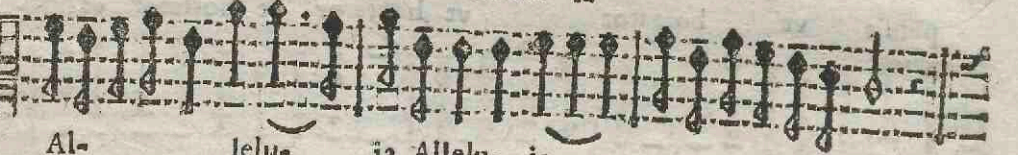 Al- lelu- ia Allelu ia